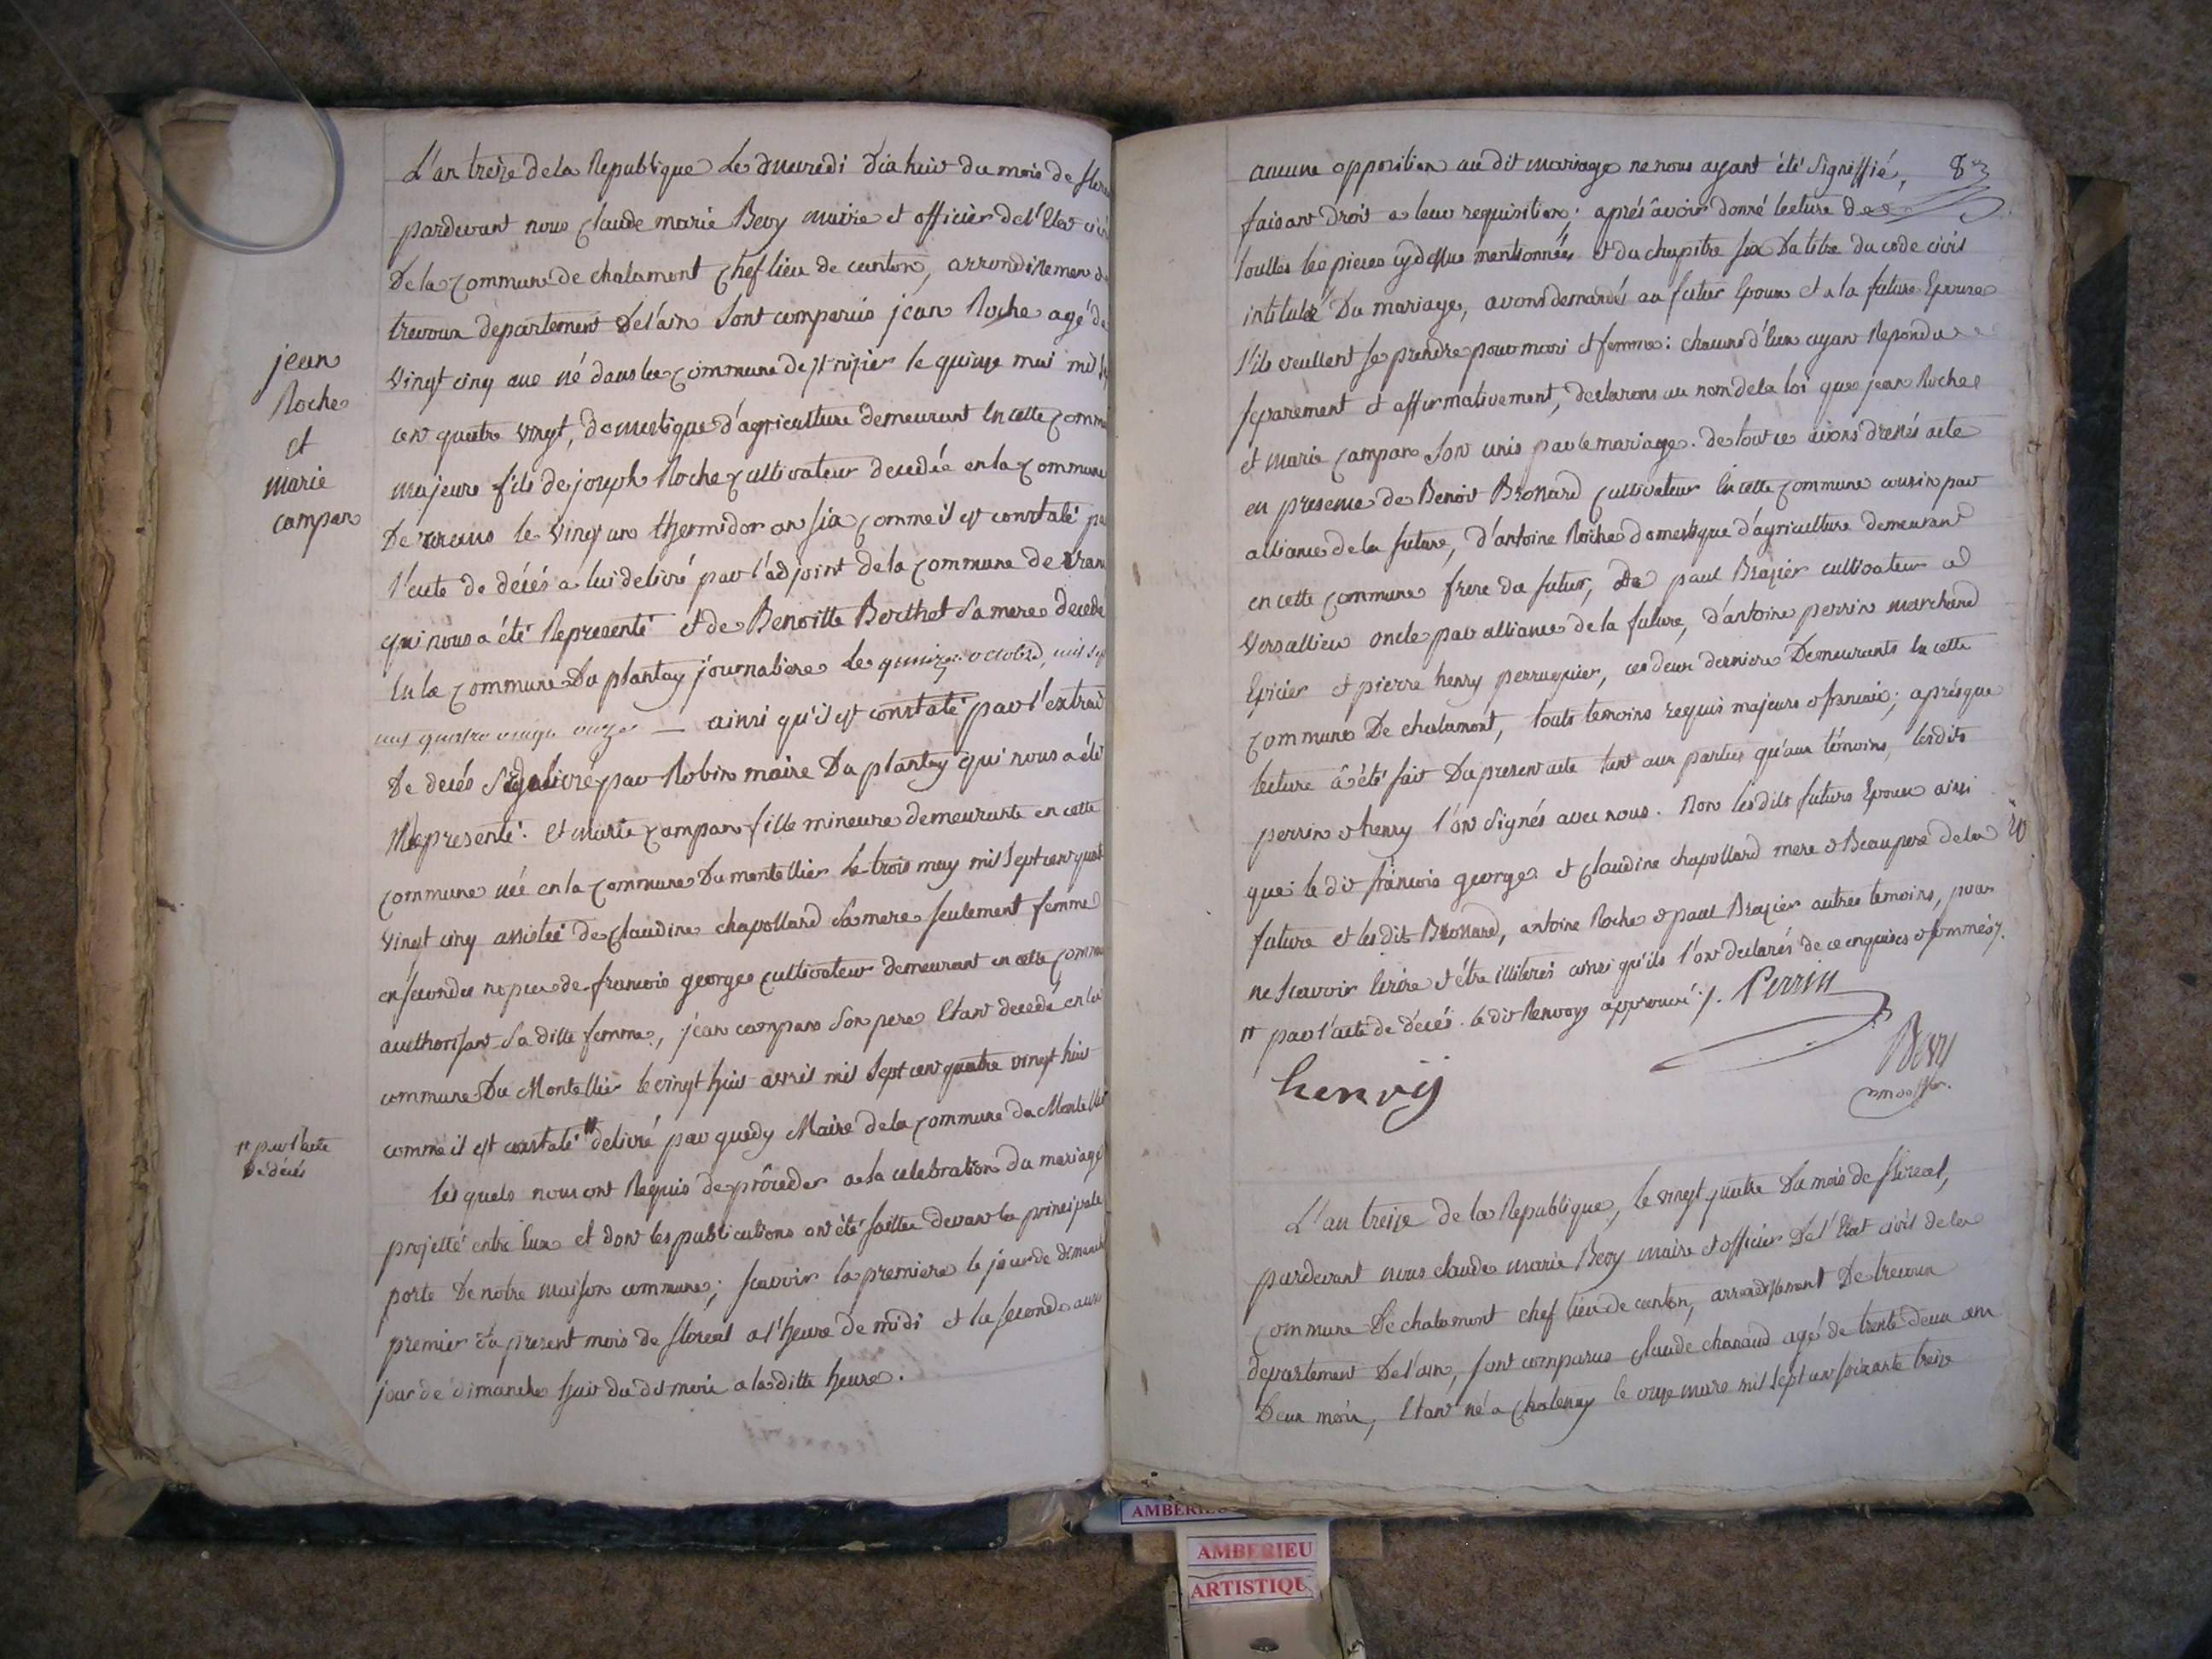 jean
Roche
et
marie
campan
L'an treize de la Republique le mercredi dix huit du mois de
pardevant nous Claude marie Bevy maire et officier de l'Etat
De la Commune de chalamont chef lieu de canton, arrondissement
trevoux departement de l'ain sont comparus jean Roche agé de
vingt cinq ans né dans la commune de st nizier le quinze mai mil
cent quatre vingt, domestique d'agriculture demeurant en cette
majeure fils de joseph Roche cultivateur decedé en la commune
De le vingt un thermidor an six comme il est constaté
l'acte de décés a lui delivré par l'adjoint de la commune de
qui nous a été Representé et de Benoitte Berthet sa mere
En la Commune Du plantay journaliere le quinze octobre, mil
cens quatre vingt onze — ainsi qu'il est constaté par l'extrait
De decés delivré par Robin maire Du plantay qui nous a été
Representé. Et marie campan fille mineure demeurante en cette
commune née en la commune Du montellier le trois may mil sept cent
vingt cinq assistée de Claudine chapollard sa mere seulement femme
en secondes nopces de francois georges cultivateur demeurant en cette
authorisant sa ditte femme, jean campan son pere Etant decedé en la
commune Du Montellier le vingt huit avril mil sept cent quatre vingt huit
comme il est constaté # delivré par guedy Maire de la commune du
# par l'acte
De décés
les quels nous ont Requis de procéder a la celebration du mariage
projetté entre Eux et dont les publications ont été faittes devant la principale
porte De notre maison commune; scavoir la premiere le jour de
premier du present mois de floreal a l'heure de midi et la seconde
jour de dimanche huit du dit mois a la ditte heure.
aucune opposition au dit mariage ne nous ayant été Signiffié, 83
faisant droit a leur requisition; aprés avoir donné lecture de
touttes les pieces cy dessus mentionnées et du chapitre six Du titre du code civil
intitulé Du mariage, avons demandés au futur Epoux et a la future Epouse
s'ils veullent se prendre pour mari et femme: chacun d'eux ayant Repondu
separement et affirmativement, declarons au nom de la loi que jean Roche
et marie campan Sont unis par le mariage. de tout ce avons dressés acte
en presence de Benoit Brossard cultivateur En cette commune cousin par
alliance de la future, d'antoine Roche domestique d'agriculture demeurant
en cette commune frere du futur, De paul Brazier cultivateur a
Versallieu oncle par alliance de la future, d'antoine perrin marchand
Epicier et pierre henry perruquier, ces deux derniers Demeurants En cette
commune De chalamont, touts temoins requis majeurs & francais; aprés que
lecture â été fait Du present acte tant aux parties qu'aux témoins, lesdits
perrin & henry l'ont Signés avec nous. Non lesdits futurs Epoux ainsi
que le dit francois georges et Claudine chapollard mere & Beaupere de la
future et les dits Brossard, antoine Roche & paul Brazier autres temoins, pour
ne scavoir Ecrire & étre illiterés ainsi qu'ils l'ont declarés de ce enquises & sommés.
# par l'acte de décés. le dit Renvoy approuvé. Perrin
henry
Bevy
L'an treize de la Republique, le vingt quatre Du mois de floreal,
pardevant nous claude marie Bevy maire et officier De l'Etat civil de la
Commune De chalamont chef lieu de canton, arrondissement De trevoux
departement De l'ain, sont comparus Claude chanaud agé de trente deux ans
Deux mois, Etant né a Chatenay le onze mars mil sept cent soixante treize
AMBERIEU
ARTISTIQU